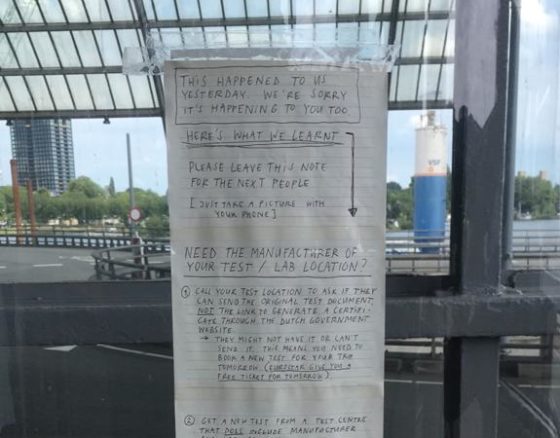 THIS HAPPENED TO US
YESTERDAY. WE'RE SORRY
IT'S HAPPENING TO YOU TOO
HERE'S WHAT WE LEARNT
PLEASE LEAVE THIS NOTE
FOR THE NEXT PEOPLE
[JUST TAKE A PICTURE WITH
YOUR PHONE]
NEED THE MANUFACTURER OF
YOUR TEST / LAB LOCATION?
① CALL YOUR TEST LOCATION TO ASK IF THEY
CAN SEND THE ORIGINAL TEST DOCUMENT,
NOT THE LINK TO GENERATE A CERTIFI-
CATE THROUGH THE DUTCH GOVERNMENT
WEBSITE.
→ THEY MIGHT NOT HAVE IT OR CAN'T
SEND IT. THIS MEANS YOU NEED TO
BOOK A NEW TEST FOR YOUR TRIP
TOMORROW. (EUROSTAR GIVE YOU A
FREE TICKET FOR TOMORROW).
② GET A NEW TEST FROM A TEST CENTRE
THAT DOES INCLUDE MANUFACTURER
VSF